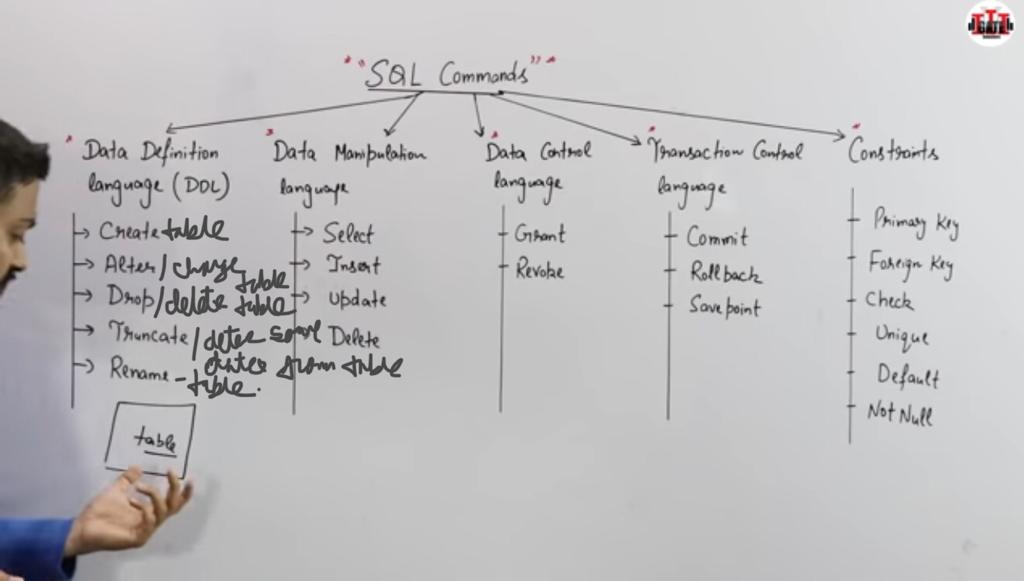 "SQL Commands"
Data Definition
language (DDL)
Create table
Alter/change
table
Drop/delete table
Truncate/detee some
datas from table
Rename - table.
table
Data Manipulation
language
Select
Insert
Update
Delete
Data Control
language
Grant
Revoke
Transaction Control
language
Commit
Rollback
Savepoint
Constraints
Primary Key
Foreign Key
Check
Unique
Default
Not Null
GATE